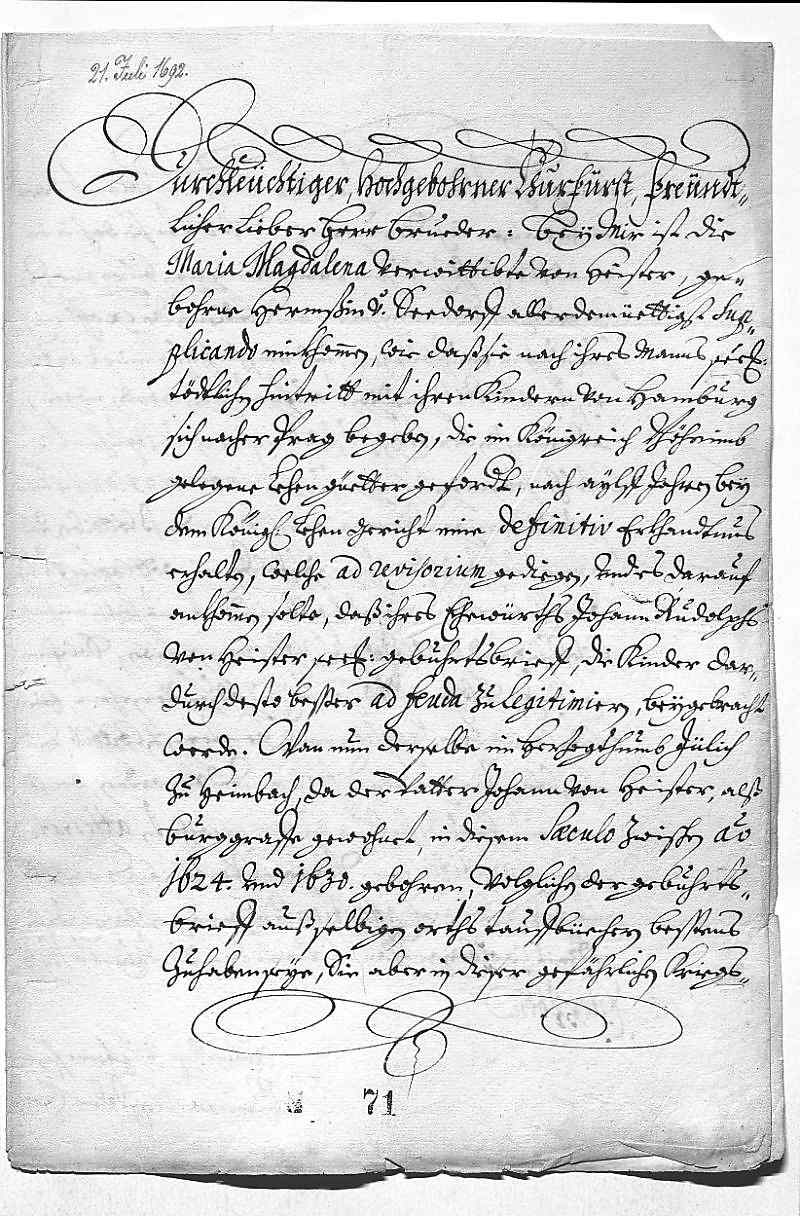 21. Juli 1692.
Durchleüchtiger, Hochgebohrner Churfürst, Freündt„
licher lieber Herr Brueder: Bey Mir ist die
Maria Magdalena verwittibte von Heister, ge„
bohrne Hermßin v. Seedorff allerdemüettigst Sup„
plicando einkhommen, wie daß sie nach ihres Manns seel:
tödtlichen hintritt mit ihren Kindern von Hamburg
sich nacher Prag begeben, die im Königreich Böheimb
gelegene Lehen güetter gefordt, nach aylff Jahren bey
dem Königl. Lehen Gericht eine definitiv Erkhandtnus
erhalten, welche ad revisorium gediegen, undt es darauf
ankhommen solte, daß ihres Ehewürths Johann Rudolphs
von Heister seel: gebuhrtsbrieff, die Kinder dar„
durch desto besser ad feuda zu legitimiern, beygebracht
werde. Wan nun derselbe im Herzogthumb Jülich
zu Heimbach, da der Vatter Johann von Heister, alß
burggraffe gewohnet, in diesem Sæculo zwischen ao
1624. und 1630. gebohren, volglichen der gebuhrts„
brieff auß selbigen orths tauffbüechern besstens
zu haben seye, Sie aber in dieser gefährlichen Kriegs„
71